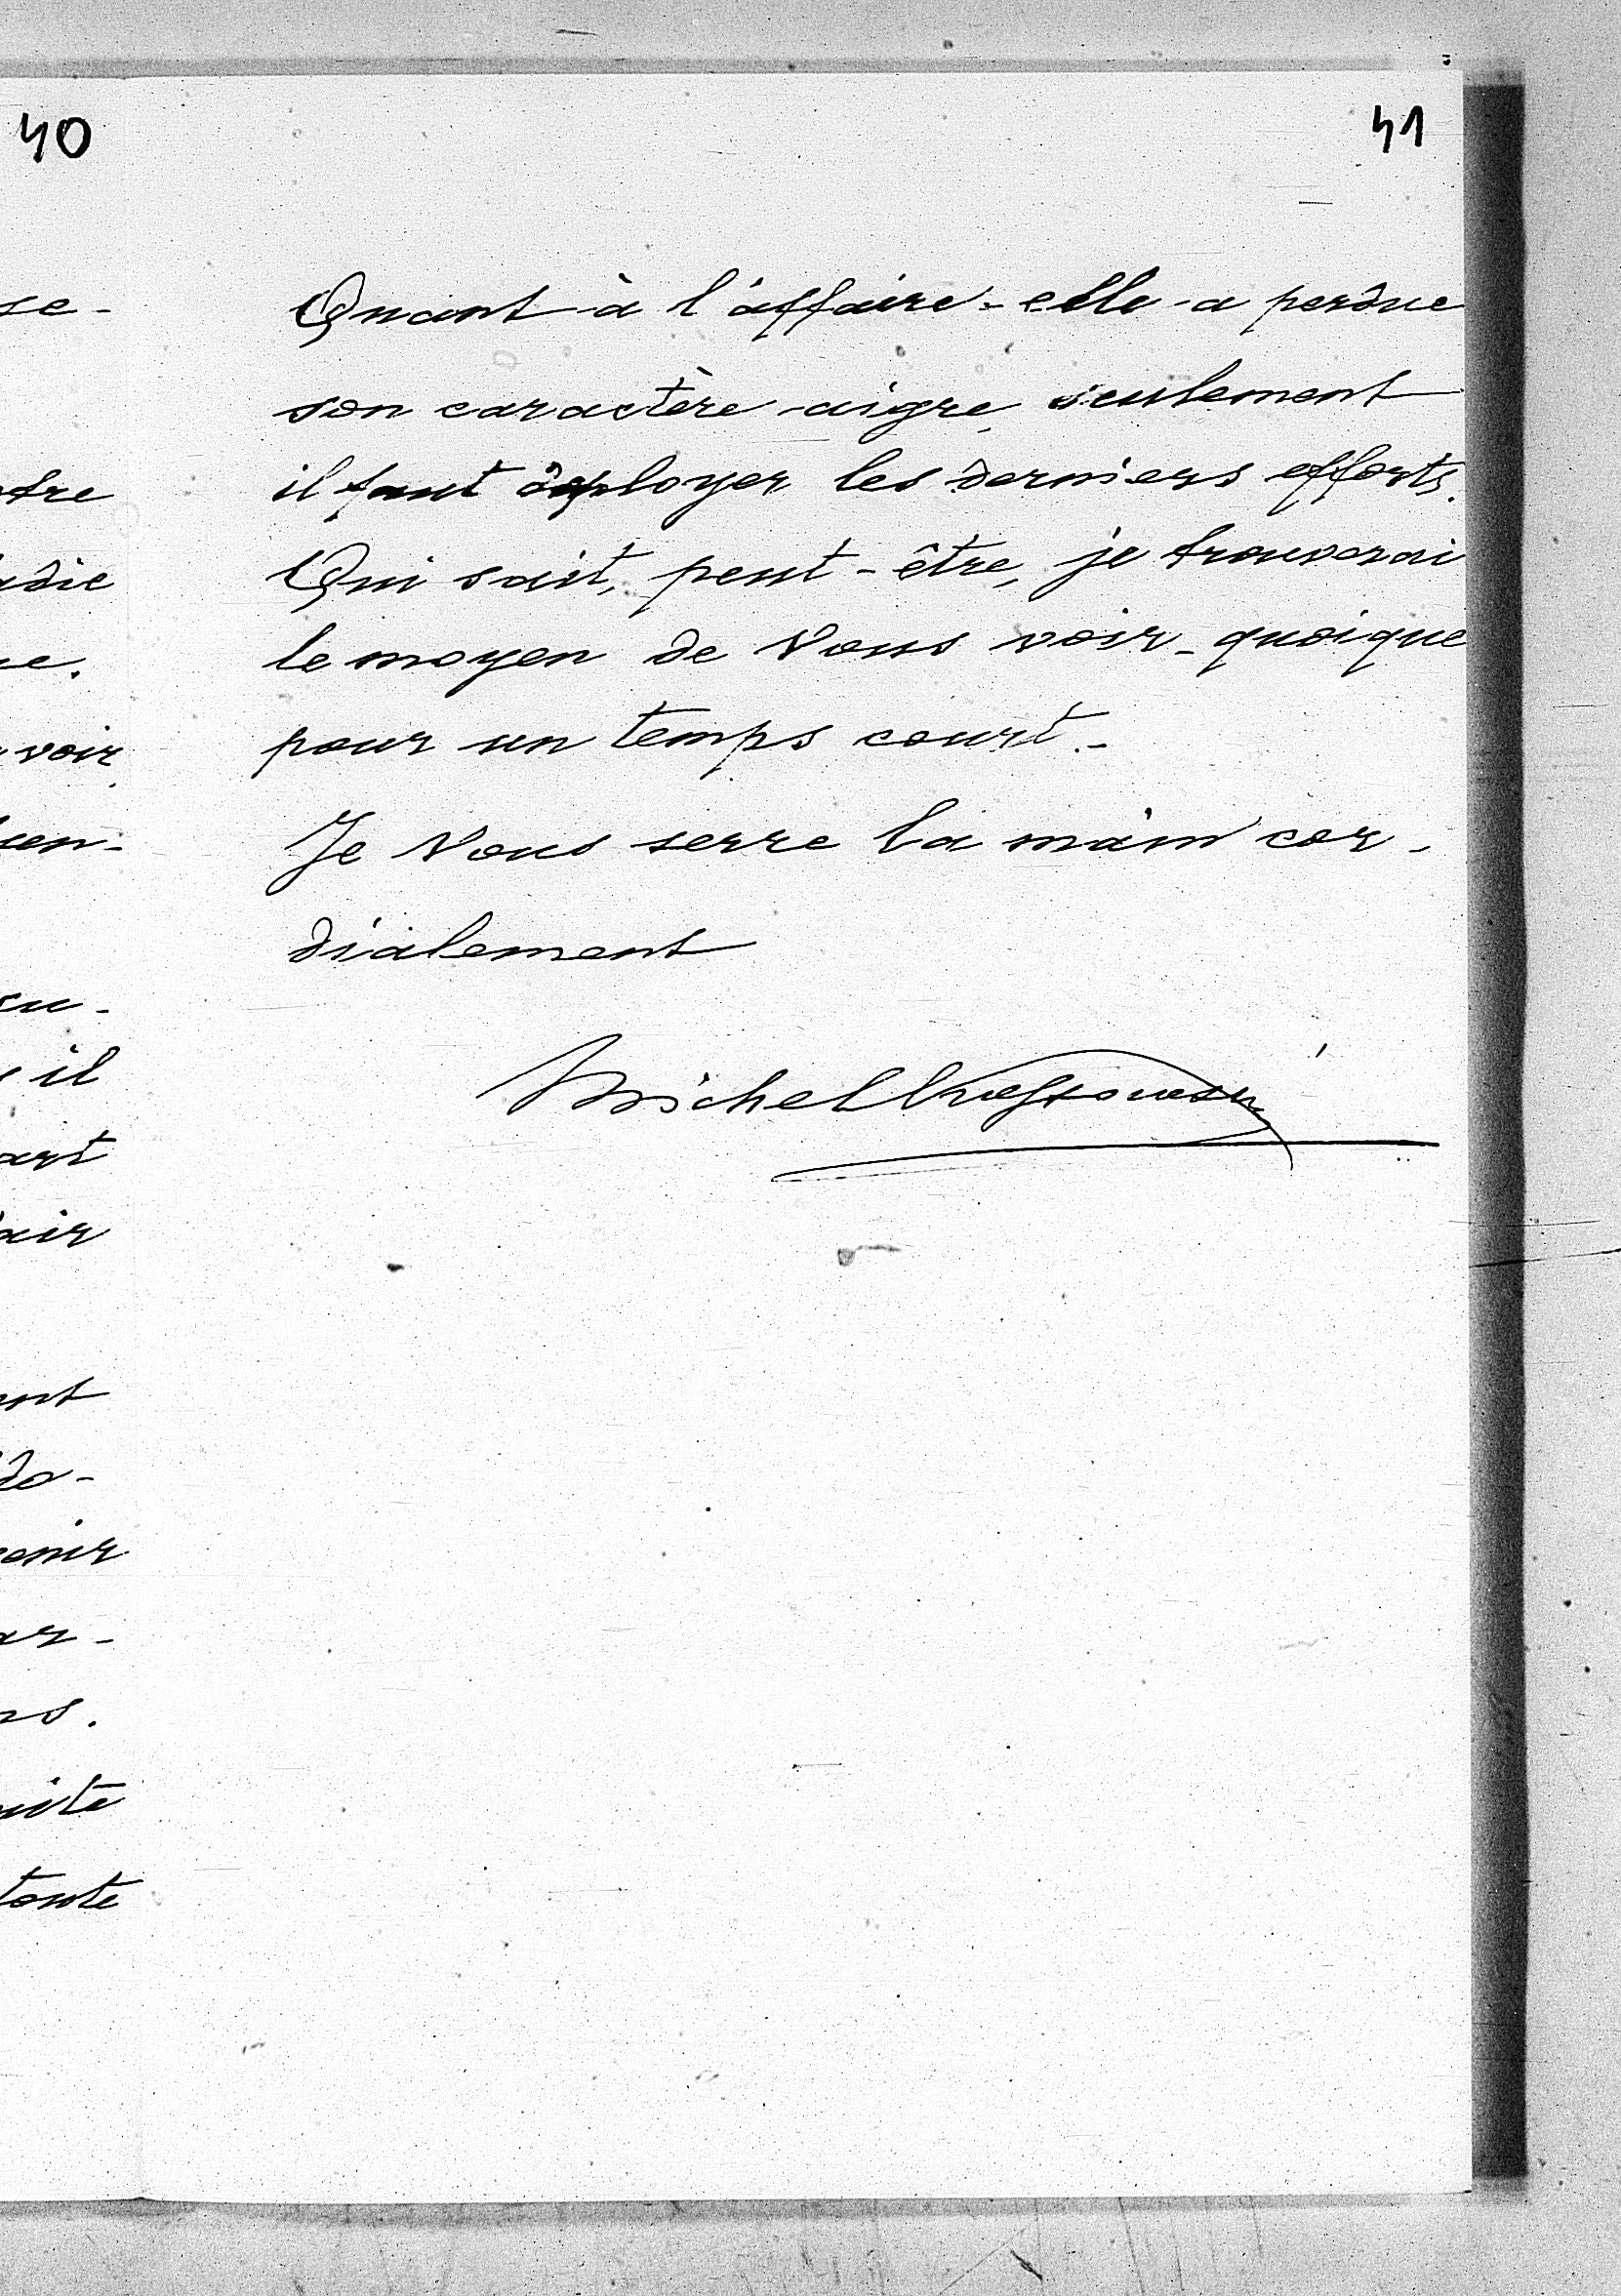 40
se-
otre
adie
ue.
voir
en-
su-
il
art
air
ant
do-
enir
ar-
ns.
uite
toute
41
Quant à l'affaire - elle a perdue
son caractère aigre, seulement
il faut déployer les derniers efforts.
Qui sait, peut-être, je trouverai
le moyen de Vous voir - quoique
pour un temps court.-
Je Vous serre la main cor-
dialement
Michel